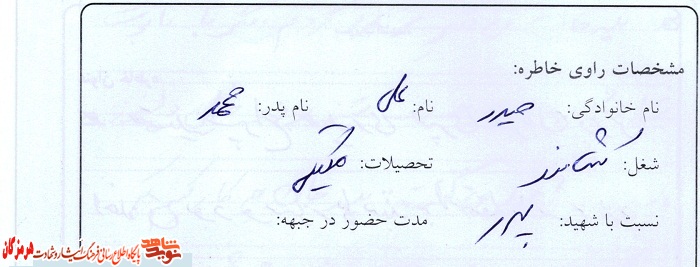 مشخصات راوی خاطره:
نام خانوادگی: حیدر نام: علی نام پدر: محمد
شغل: کشاورز تحصیلات:
نسبت با شهید: پدر مدت حضور در جبهه:
نوید شاهد
پایگاه اطلاع رسانی فرهنگ ایثار و شهادت هرمزگان